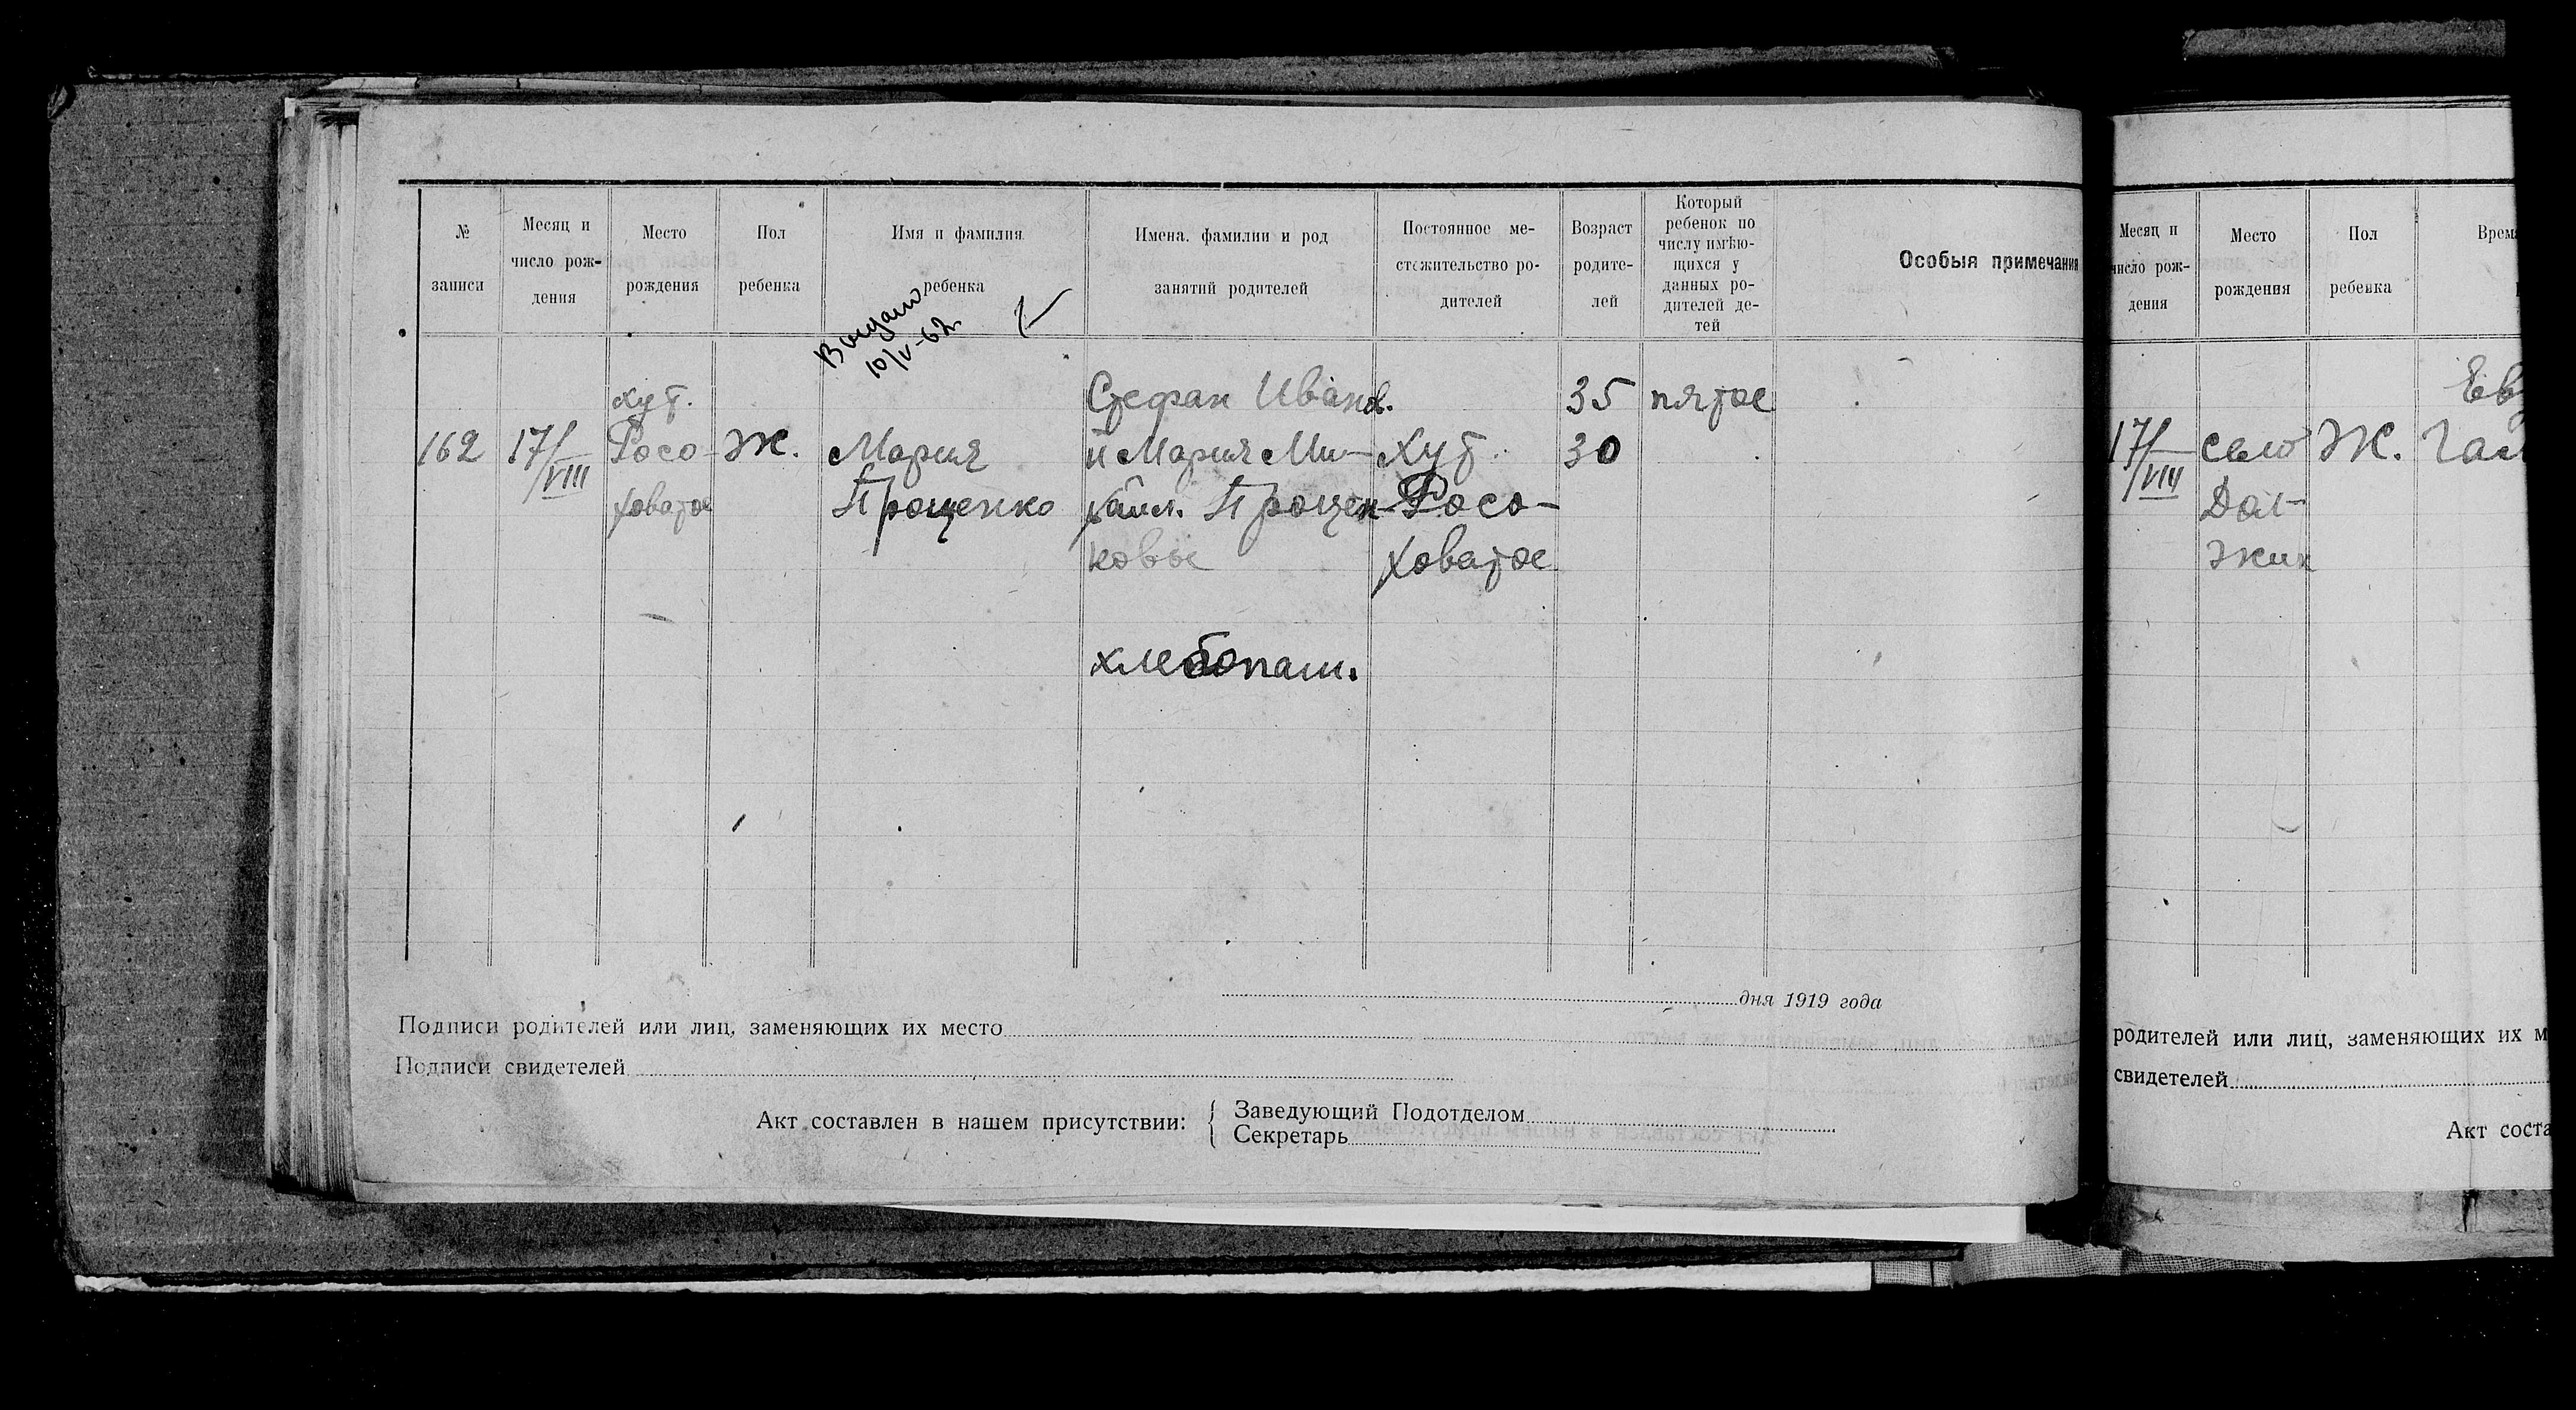 № записи
Месяц и число рождения
Место рождения
Пол ребенка
Имя и фамилия ребенка
Имена, фамилии и род занятий родителей
Постоянное местожительство родителей
Возраст родителей
Который ребенок по числу имѣющихся у данных родителей детей
Особыя примечания
Выдано
10/V-62
162
17/VIII
хут.
Росо-
ховатое
Ж.
Мария
Прощенко
Стефан Иванов.
и Мария Ми-
хайл. Прощен-
ковы
хлебопаш.
Хут.
Росо-
ховатое
35
30
пятое
дня 1919 года
Подписи родителей или лиц, заменяющих их место
Подписи свидетелей
Акт составлен в нашем присутствии:
Заведующий Подотделом
Секретарь
Месяц и
число рож-
дения
Место
рождения
Пол
ребенка
17/VIII
село
Дол-
жик
Ж.
родителей или лиц, заменяющих их м
свидетелей
Акт соста